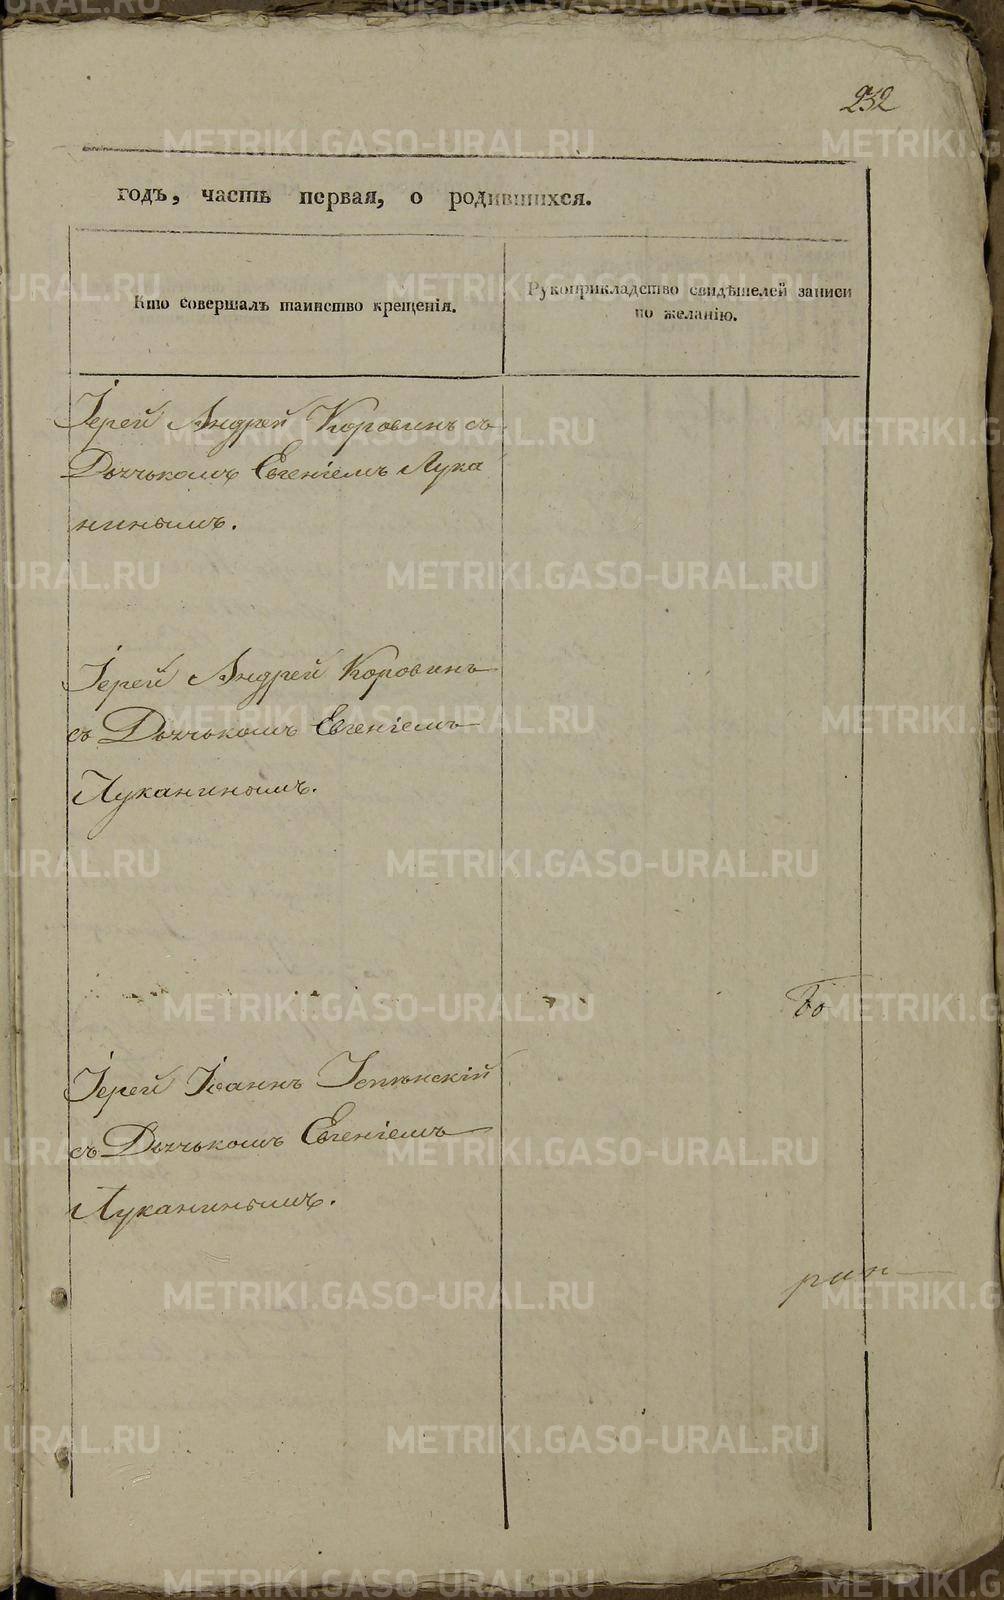 232
годъ, часть первая, о родившихся.
Кто совершалъ таинство крещенія.
Рукоприкладство свидѣтелей записи
по желанію.
Іерей Андрей Коровинъ съ
Дьячькомъ Евгеніемъ Лука
нинымъ.
Іерей Андрей Коровинъ
съ Дьячькомъ Евгеніемъ
Луканинымъ.
Іерей Іоаннъ
съ Дьячькомъ Евгеніемъ
Луканинымъ.
METRIKI.GASO-URAL.RU